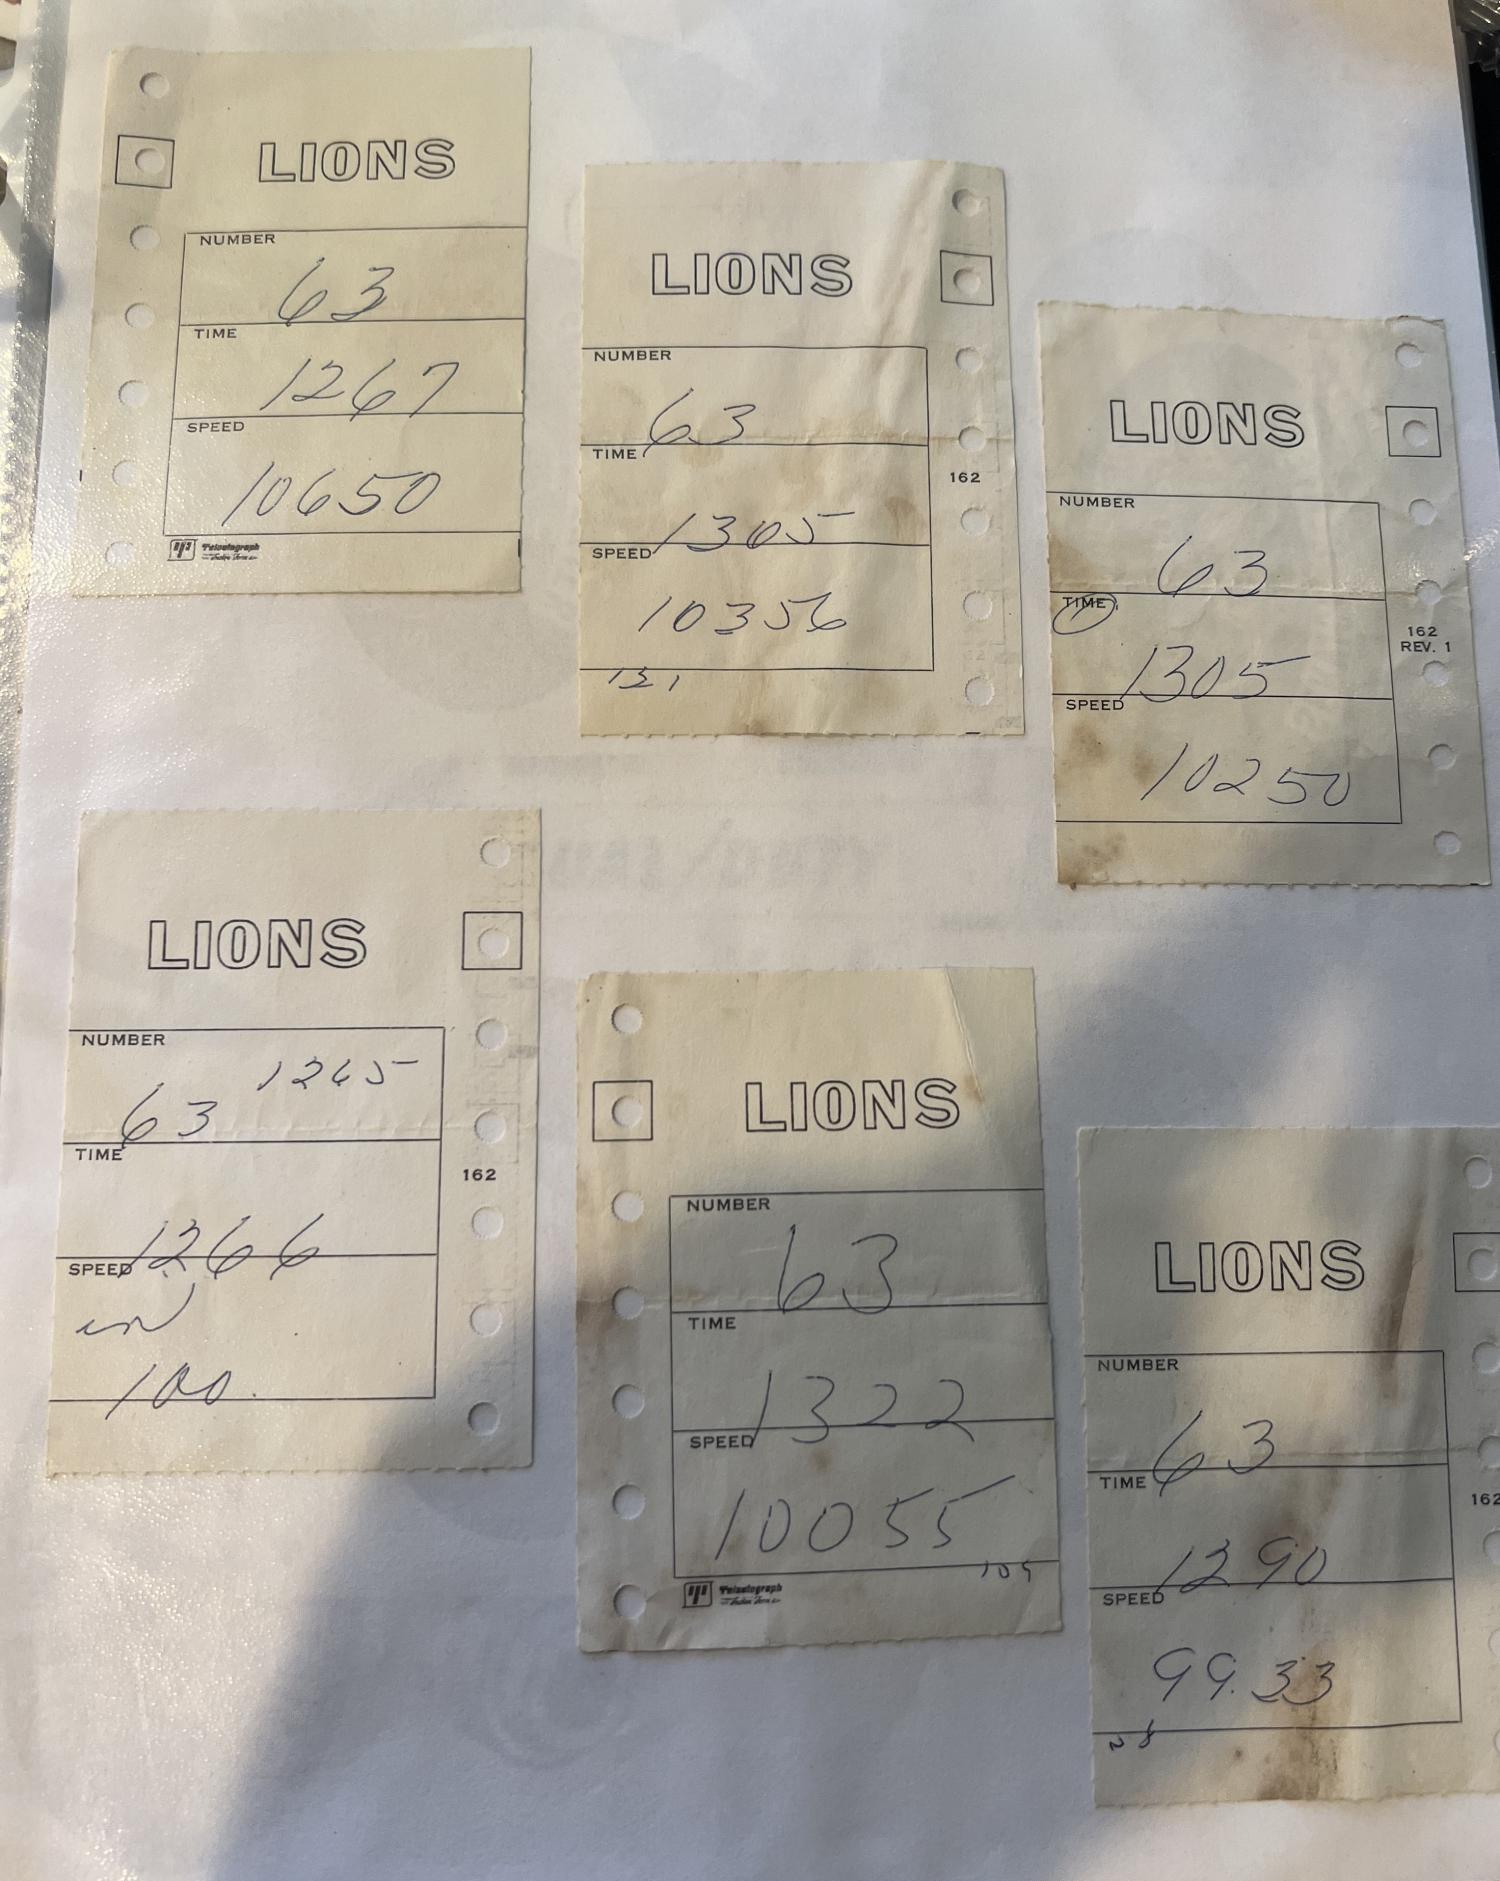 LIONS
NUMBER
63
TIME
1267
SPEED
10650
Telautograph
LIONS
NUMBER
63
TIME
1305
SPEED
10356
131
162
LIONS
NUMBER
63
TIME
1305
SPEED
10250
162
REV. 1
LIONS
NUMBER
1265
63
TIME
1266
SPEED
100.
162
LIONS
NUMBER
63
TIME
1322
SPEED
10055
105
Telautograph
LIONS
NUMBER
63
TIME
1290
SPEED
99.33
28
162